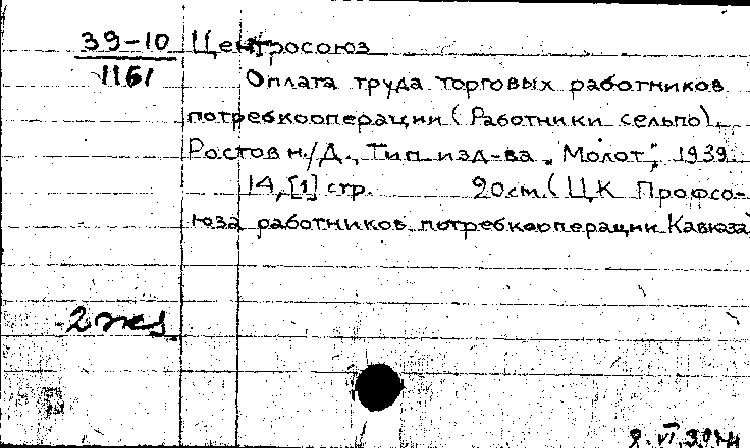 39-10 Центросоюз
1161
Оплата труда торговых работников
потребкооперации (Работники сельпо).
Ростов н./Д., Тип. изд-ва „Молот", 1939.
14, [1] стр. 20 см. (ЦК Профсо-
юза работников потребкооперации Кавказа)
2 экз.